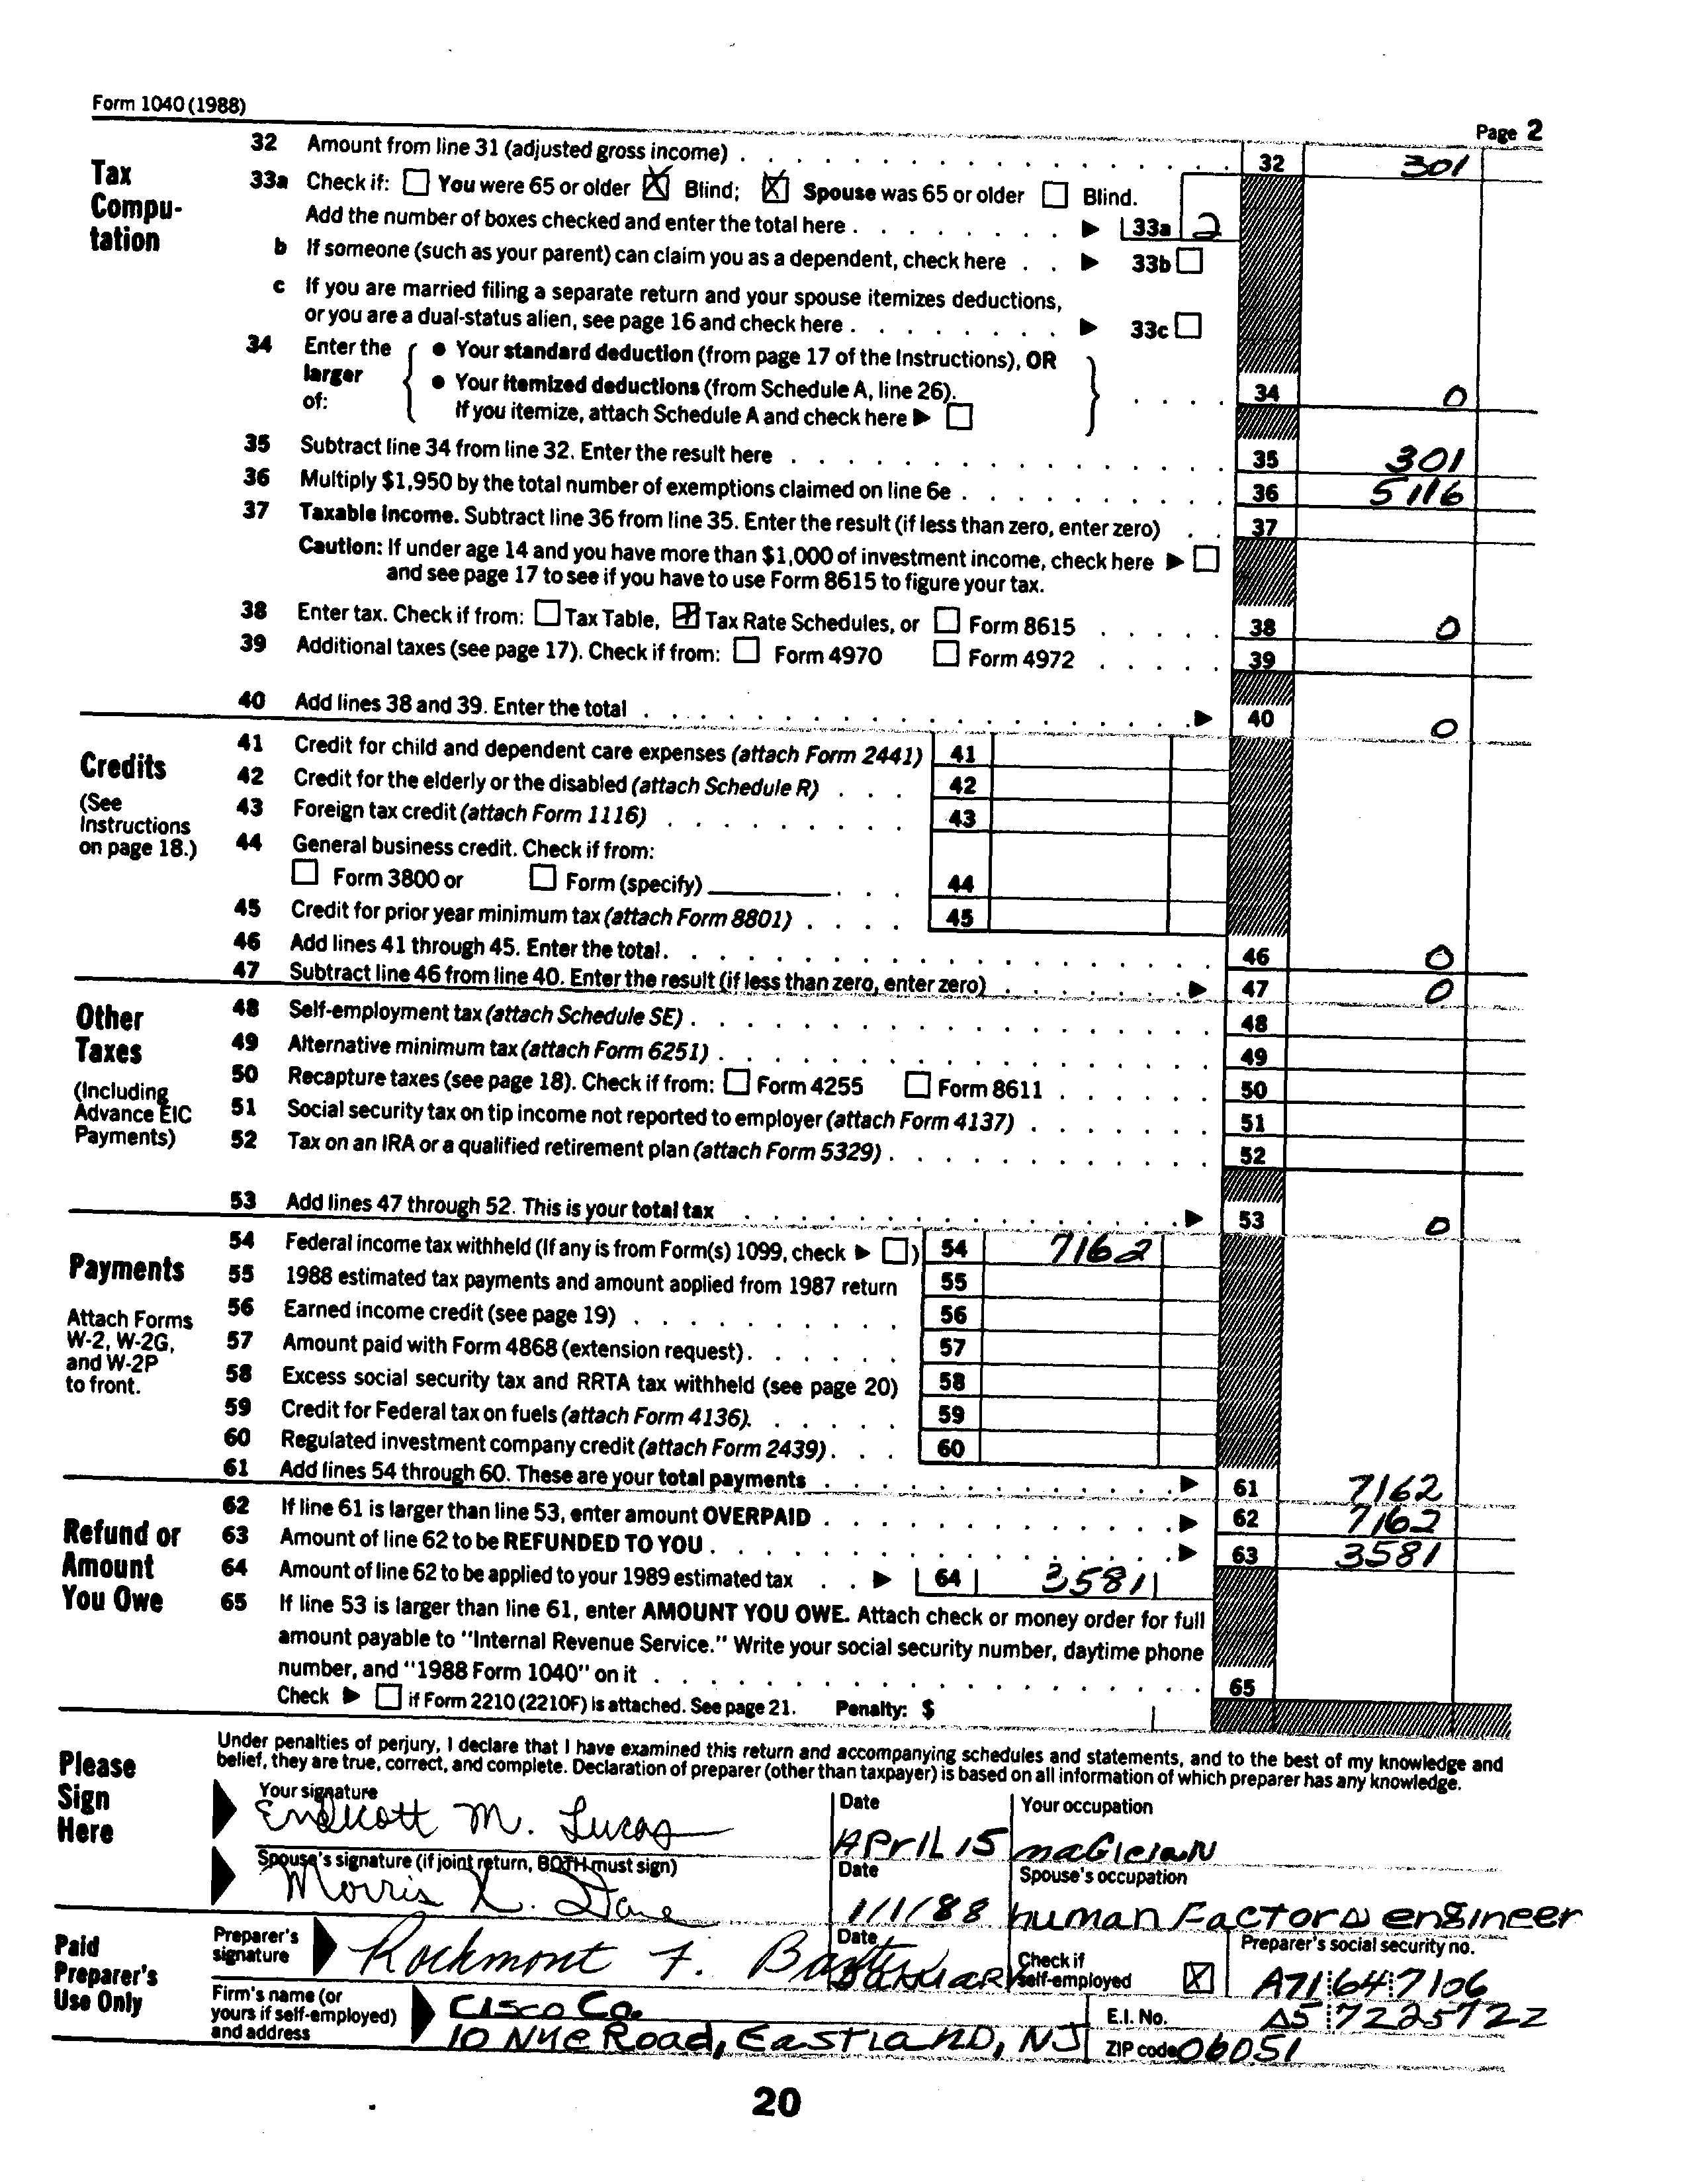 Form 1040 (1988)
Page 2
Tax Compu-tation
32 Amount from line 31 (adjusted gross income) 32 301
33a Check if: You were 65 or older X Blind; X Spouse was 65 or older Blind.
Add the number of boxes checked and enter the total here 33a 2
b If someone (such as your parent) can claim you as a dependent, check here 33b
c If you are married filing a separate return and your spouse itemizes deductions,
or you are a dual-status alien, see page 16 and check here 33c
34 Enter the larger of:
• Your standard deduction (from page 17 of the Instructions), OR
• Your itemized deductions (from Schedule A, line 26).
If you itemize, attach Schedule A and check here 34 0
35 Subtract line 34 from line 32. Enter the result here 35 301
36 Multiply $1,950 by the total number of exemptions claimed on line 6e 36 5116
37 Taxable income. Subtract line 36 from line 35. Enter the result (if less than zero, enter zero) 37
Caution: If under age 14 and you have more than $1,000 of investment income, check here
and see page 17 to see if you have to use Form 8615 to figure your tax.
38 Enter tax. Check if from: Tax Table, X Tax Rate Schedules, or Form 8615 38 0
39 Additional taxes (see page 17). Check if from: Form 4970 Form 4972 39
40 Add lines 38 and 39. Enter the total 40 0
Credits
(See Instructions on page 18.)
41 Credit for child and dependent care expenses (attach Form 2441) 41
42 Credit for the elderly or the disabled (attach Schedule R) 42
43 Foreign tax credit (attach Form 1116) 43
44 General business credit. Check if from:
Form 3800 or Form (specify) 44
45 Credit for prior year minimum tax (attach Form 8801) 45
46 Add lines 41 through 45. Enter the total. 46 0
47 Subtract line 46 from line 40. Enter the result (if less than zero, enter zero) 47 0
Other Taxes
(Including Advance EIC Payments)
48 Self-employment tax (attach Schedule SE) 48
49 Alternative minimum tax (attach Form 6251) 49
50 Recapture taxes (see page 18). Check if from: Form 4255 Form 8611 50
51 Social security tax on tip income not reported to employer (attach Form 4137) 51
52 Tax on an IRA or a qualified retirement plan (attach Form 5329) 52
53 Add lines 47 through 52. This is your total tax 53 0
Payments
Attach Forms W-2, W-2G, and W-2P to front.
54 Federal income tax withheld (If any is from Form(s) 1099, check ) 54 7162
55 1988 estimated tax payments and amount applied from 1987 return 55
56 Earned income credit (see page 19) 56
57 Amount paid with Form 4868 (extension request) 57
58 Excess social security tax and RRTA tax withheld (see page 20) 58
59 Credit for Federal tax on fuels (attach Form 4136). 59
60 Regulated investment company credit (attach Form 2439) 60
61 Add lines 54 through 60. These are your total payments 61 7162
Refund or Amount You Owe
62 If line 61 is larger than line 53, enter amount OVERPAID 62 7162
63 Amount of line 62 to be REFUNDED TO YOU 63 3581
64 Amount of line 62 to be applied to your 1989 estimated tax 64 3581
65 If line 53 is larger than line 61, enter AMOUNT YOU OWE. Attach check or money order for full
amount payable to "Internal Revenue Service." Write your social security number, daytime phone
number, and "1988 Form 1040" on it 65
Check if Form 2210 (2210F) is attached. See page 21. Penalty: $
Please Sign Here
Under penalties of perjury, I declare that I have examined this return and accompanying schedules and statements, and to the best of my knowledge and
belief, they are true, correct, and complete. Declaration of preparer (other than taxpayer) is based on all information of which preparer has any knowledge.
Your signature Date Your occupation
Endicott M. Lucas APrIL 15 maGiciaN
Spouse's signature (if joint return, BOTH must sign) Date Spouse's occupation
Morris K. 1/1/88 human Factors engineer
Paid Preparer's Use Only
Preparer's signature Date Check if self-employed X Preparer's social security no.
Rockmont F. A71 64 7106
Firm's name (or yours if self-employed) and address
Cisco Co. E.I. No. 7225722
10 Nye Road, EastLaND, NJ ZIP code 06051
20